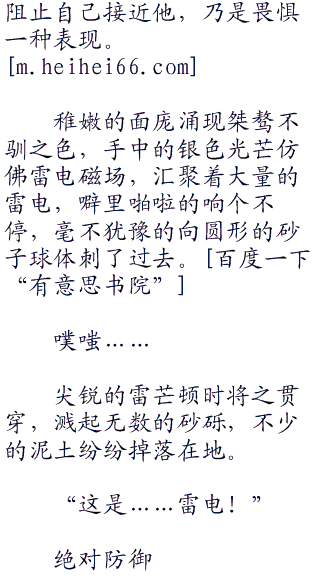 阻止自己接近他，乃是畏惧
一种表现。
[m.heihei66.com]
稚嫩的面庞涌现桀骜不
驯之色，手中的银色光芒仿
佛雷电磁场，汇聚着大量的
雷电，噼里啪啦的响个不
停，毫不犹豫的向圆形的砂
子球体刺了过去。[百度一下
“有意思书院”]
噗嗤……
尖锐的雷芒顿时将之贯
穿，溅起无数的砂砾，不少
的泥土纷纷掉落在地。
“这是……雷电！”
绝对防御